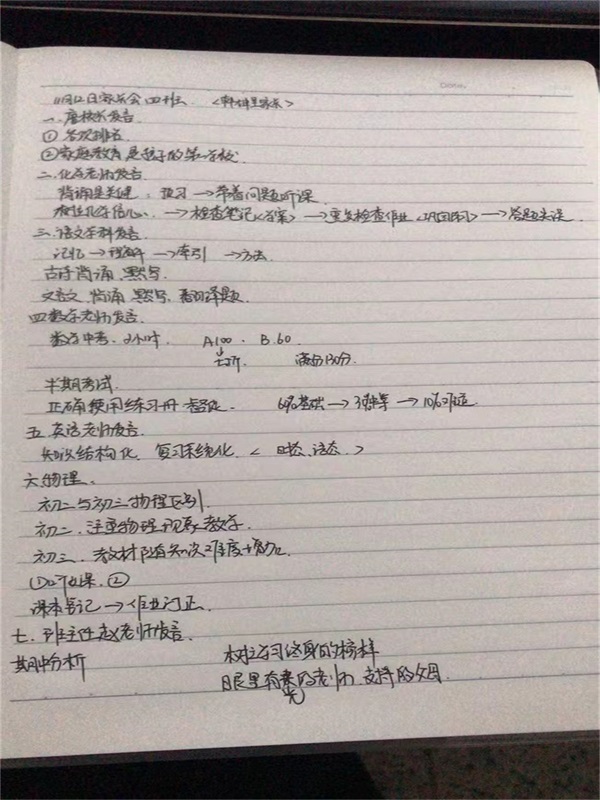 11月12日家长会四班
一.唐校长发言
①名次排名
②家庭教育是孩子的第一学校
二.化学老师发言
背诵是关键:预习→带着问题听课
→检查笔记<答案>→重点检查作业<巩固练习>→
三.语文学科发言
记忆→理解→牵引→方法
古诗背诵、默写.
文言文、背诵、默写、翻译题.
四数学老师发言.
数学中考、2小时. A100. B.60
满分150分
半期考试.
正确使用练习册 60%基础→→10%难题
五.英语老师发言
知识结构化、复习系统化<时态、语态>
六物理.
初二与初三物理区别.
初二.注重物理现象教学.
初三.教材随知识难度增加.
①听课.②
课本笔记→作业订正.
七.班主任赵老师发言.
期中分析 树立学习的榜样
眼里有光的老师、支持的父母.